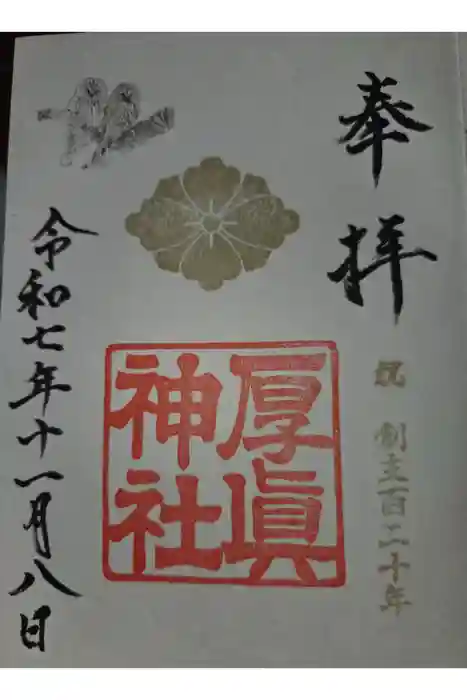 奉拝
祝 創立百二十年
厚眞
神社
令和七年十一月八日